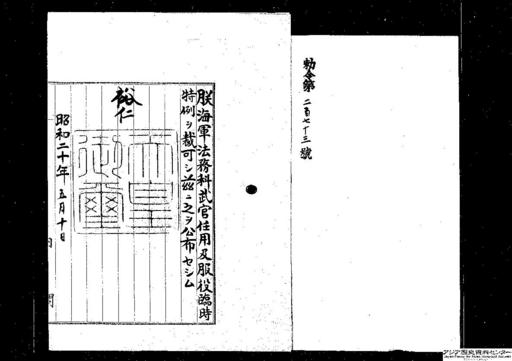 勅令第二百七十三號
朕海軍法務科武官任用及服役臨時
特例ヲ裁可シ茲ニ之ヲ公布セシム
裕仁
天皇御璽
昭和二十年五月十日
内閣
アジア歴史資料センター